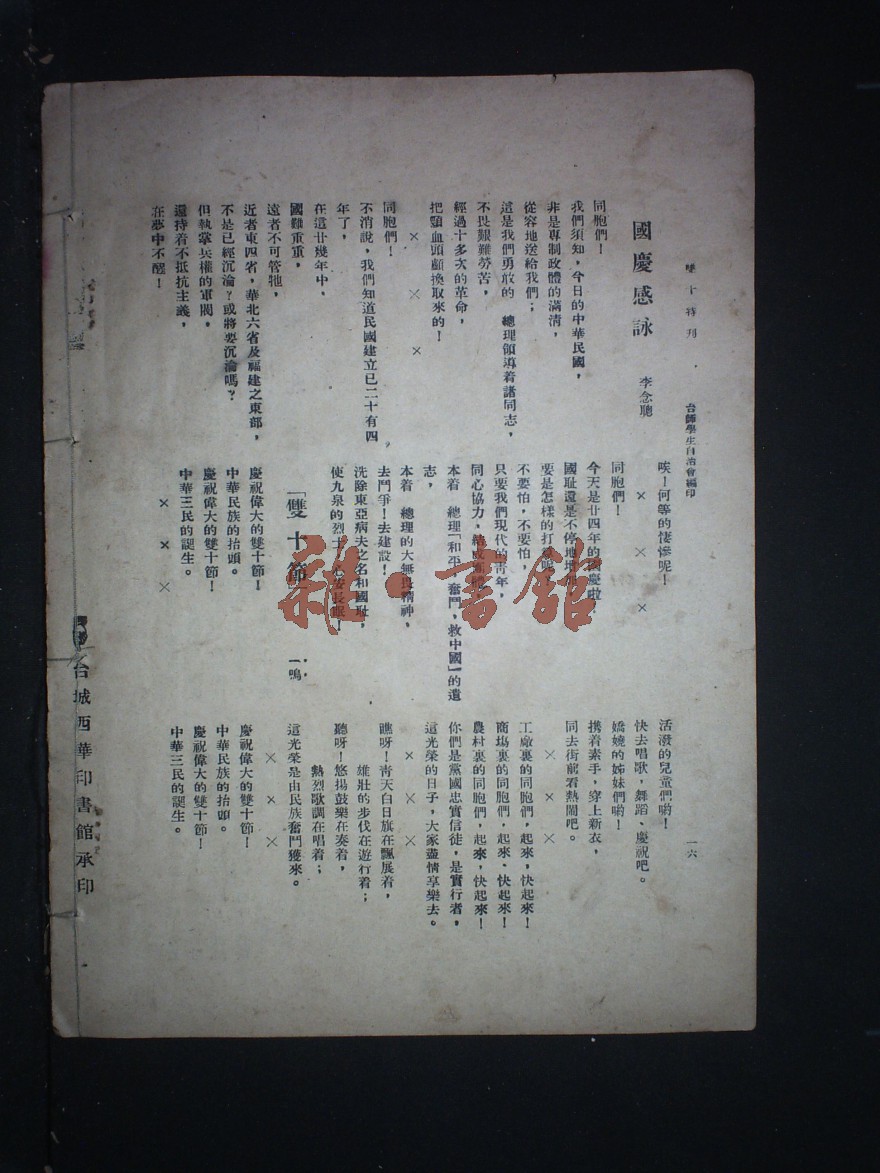 雙十特刊
台師學生自治會編印
一六
國慶感詠
李念聰
同胞們！
我們須知，今日的中華民國，
非是專制政體的滿清，
從容地送給我們；
這是我們勇敢的　總理領導着諸同志，
不畏艱難勞苦，
經過十多次的革命，
把頸血頭顱換取來的！
×　×　×
同胞們！
不消說，我們知道民國建立已二十有四
年了，
在這廿幾年中，
國難重重，
遠者不可管牠，
近者東四省，華北六省及福建之東部，
不是已經沉淪？或將要沉淪嗎？
但執掌兵權的軍閥，
還持着不抵抗主義，
在夢中不醒！
唉！何等的悽慘呢！
×　×　×
同胞們！
今天是廿四年的國慶啦
國恥還是不停地增加
要是怎樣的打算呢
不要怕，不要怕，
只要我們現代的青年，
同心協力，結成
本着　總理「和平　奮鬥，救中國」的遺
志，
本着　總理的大無畏精神，
去鬥爭！去建設！
洗除東亞病夫之名和國恥，
使九泉的烈士，心安長眠！
「雙十節」
一鳴
慶祝偉大的雙十節！
中華民族的抬頭。
慶祝偉大的雙十節！
中華三民的誕生。
×　×　×
活潑的兒童們喲！
快去唱歌，舞蹈、慶祝吧。
嬌嬈的姊妹們喲！
携着素手，穿上新衣，
同去街前看熱鬧吧。
×　×　×
工廠裏的同胞們，起來，快起來！
商塲裏的同胞們，起來、快起來！
農村裏的同胞們，起來，快起來！
你們是黨國忠實信徒，是實行者，
這光榮的日子，大家盡情享樂去。
×　×　×
譙呀！靑天白日旗在飄展着，
雄壯的步伐在遊行着；
聽呀！悠揚鼓樂在奏着，
熱烈歌調在唱着；
這光榮是由民族奮鬥獲來。
×　×　×
慶祝偉大的雙十節！
中華民族的抬頭。
慶祝偉大的雙十節！
中華三民的誕生。
台城西華印書館承印
雜·書館